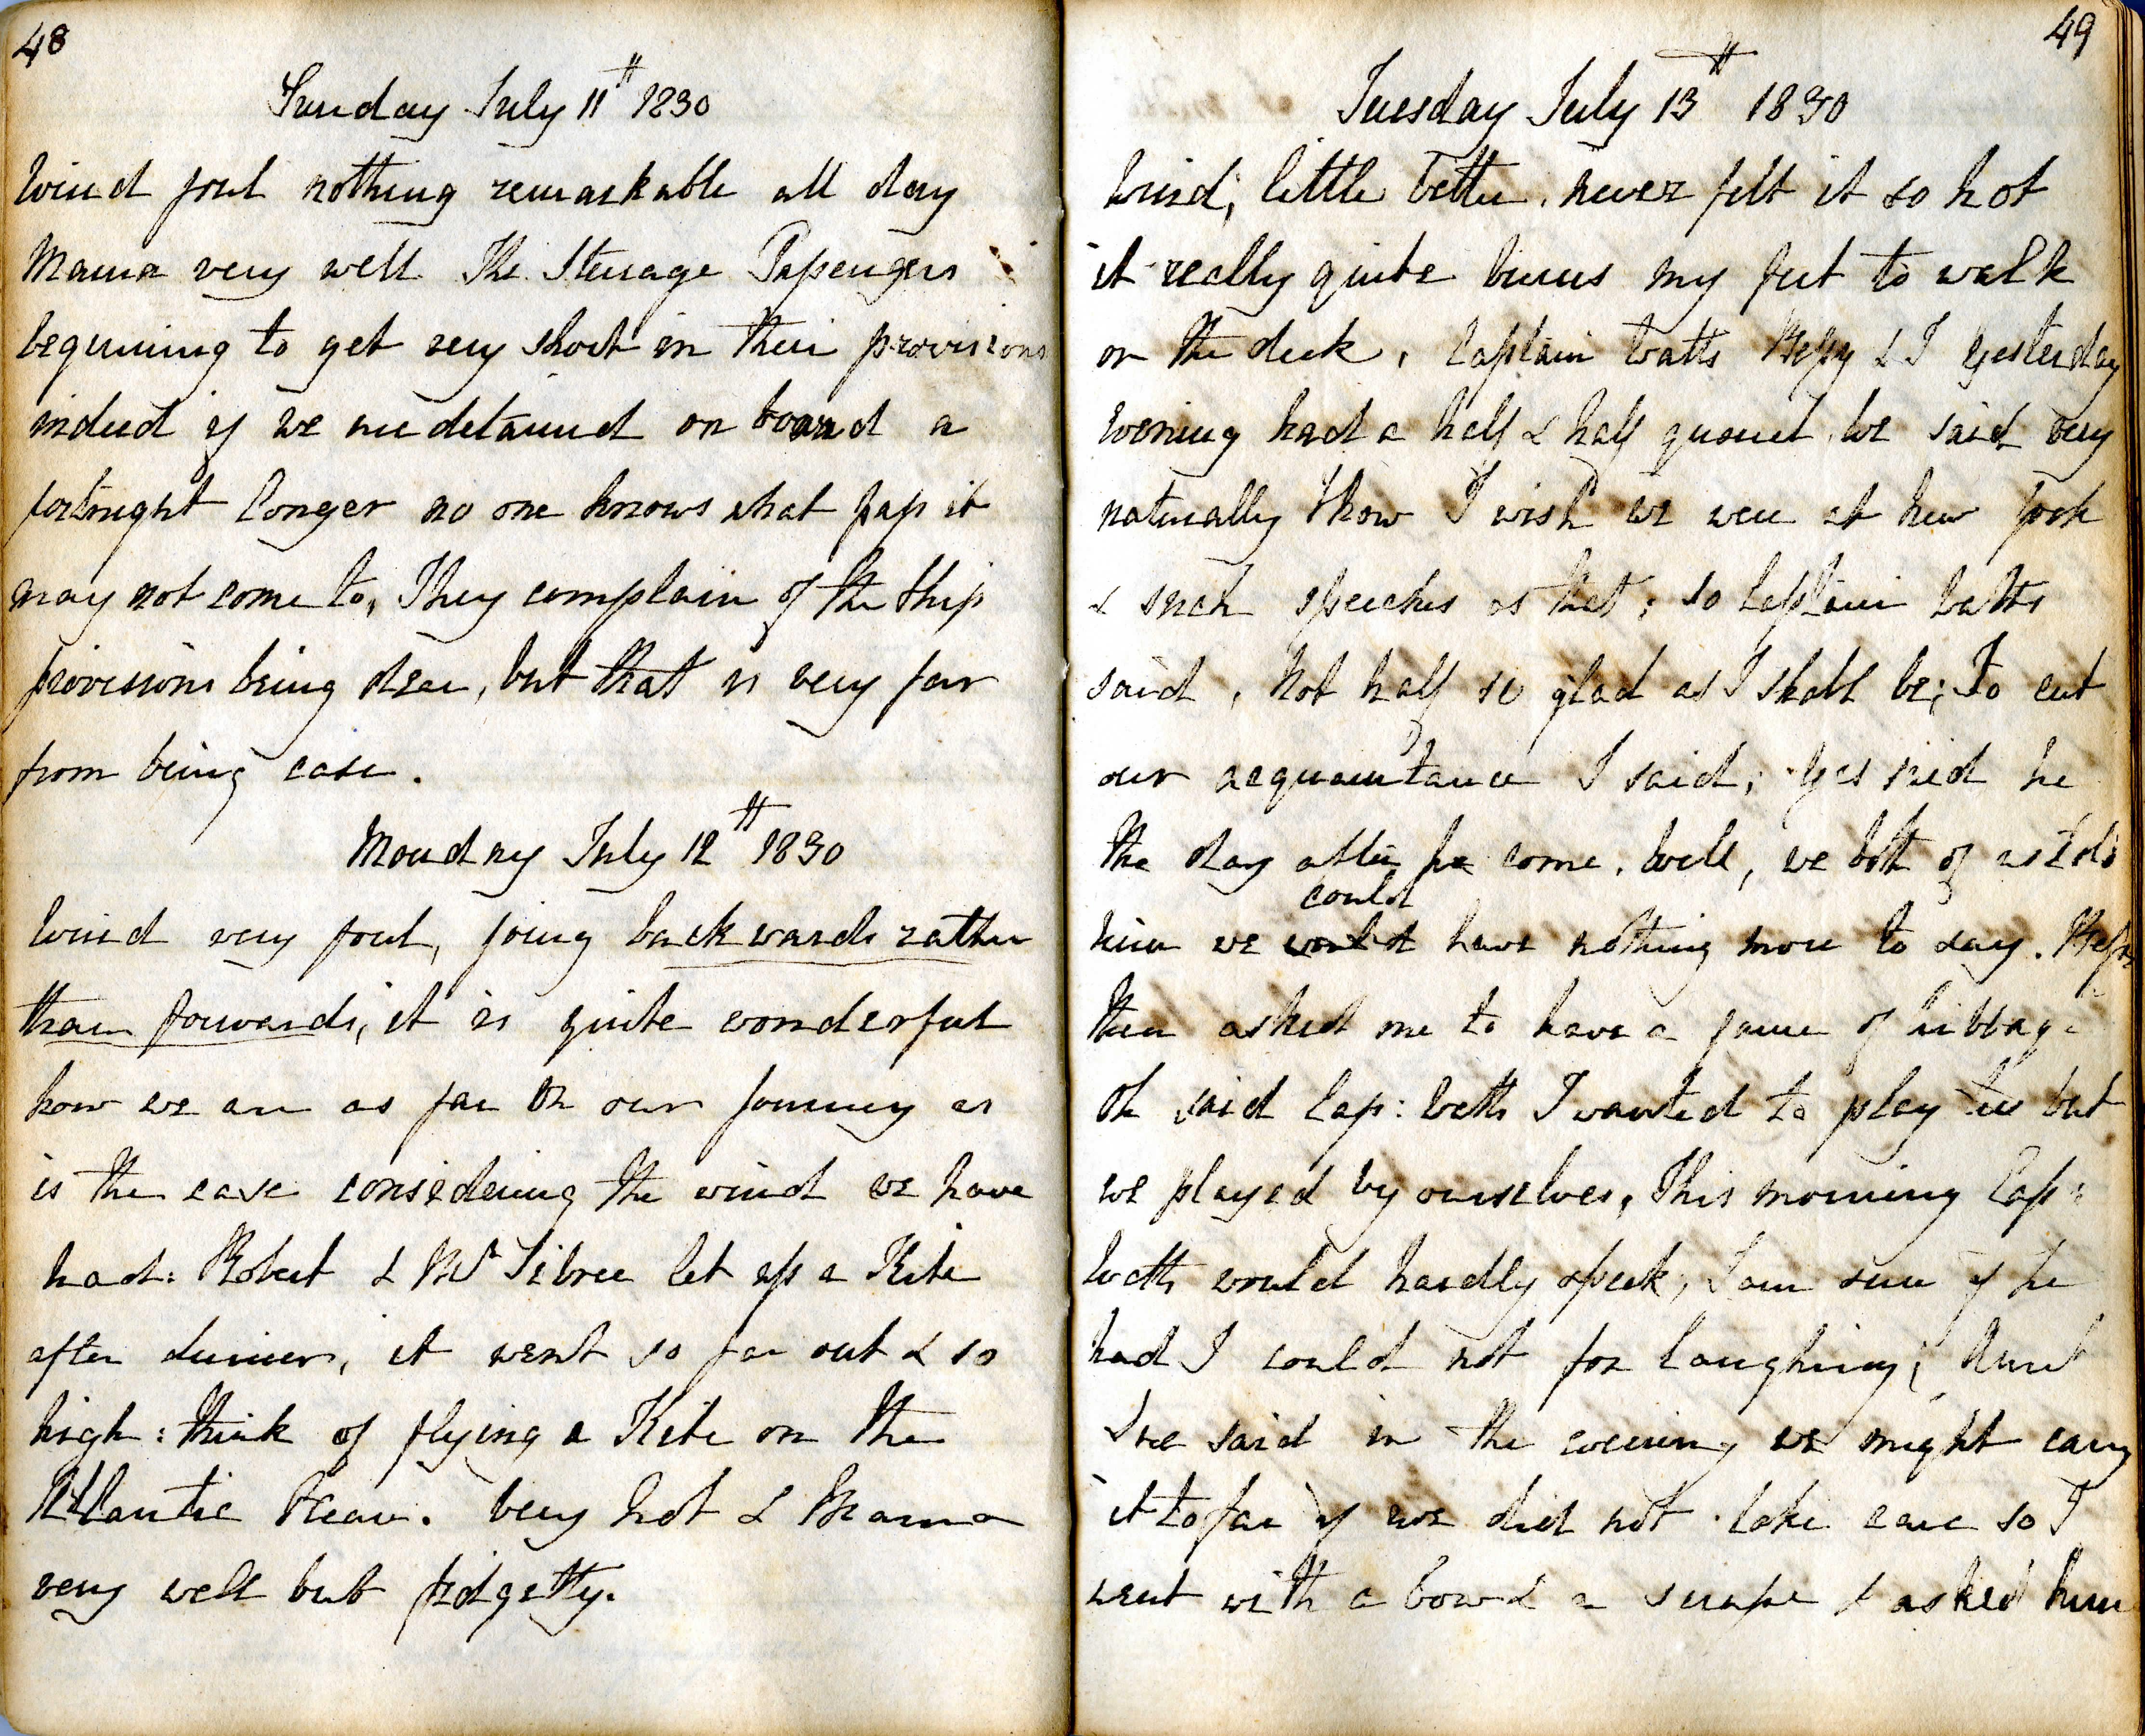 48
Sunday July 11th 1830
Wind foul nothing remarkable all day
Mama very well The Steerage Passengers
beginning to get very short in their provisions
indeed if we are detained on board a
fortnight longer no one knows what pass it
may not come to, They complain of the Ship
provisions being dear, but that is very far
from being case.
Monday July 12th 1830
Wind very foul, going backwards rather
than forwards, it is quite wonderful
how we are as far on our Journey as
is the case considering the wind we have
had: Robert & Mr Sibree let up a Kite
after dinner, it went so far out & so
high: think of flying a Kite on the
Atlantic Ocean. Very hot & Mama
very well but fidgetty.
49
Tuesday July 13th 1830
Wind, little better, never felt it so hot
it really quite burns my feet to walk
on the deck, Captain Watts & I yesterday
evening had a half & half quarrel, we said very
naturally how I wish we were at New York
& such speeches as that; so Captain Watts
said, Not half so glad as I shall be; To cut
our acquaintance I said; Yes said he
the day after come. Well, we both of us told
him we could have nothing more to say.
then asked me to have a game of Cribbage
Oh said Cap: Watts I wanted to play but
we played by ourselves, This morning Cap:
Watts would hardly speak, I am sure if he
had I could not for laughing; Aunt
said in the evening we might carry
it to far if we did not take care so I
went with a bow & a scrape & asked him